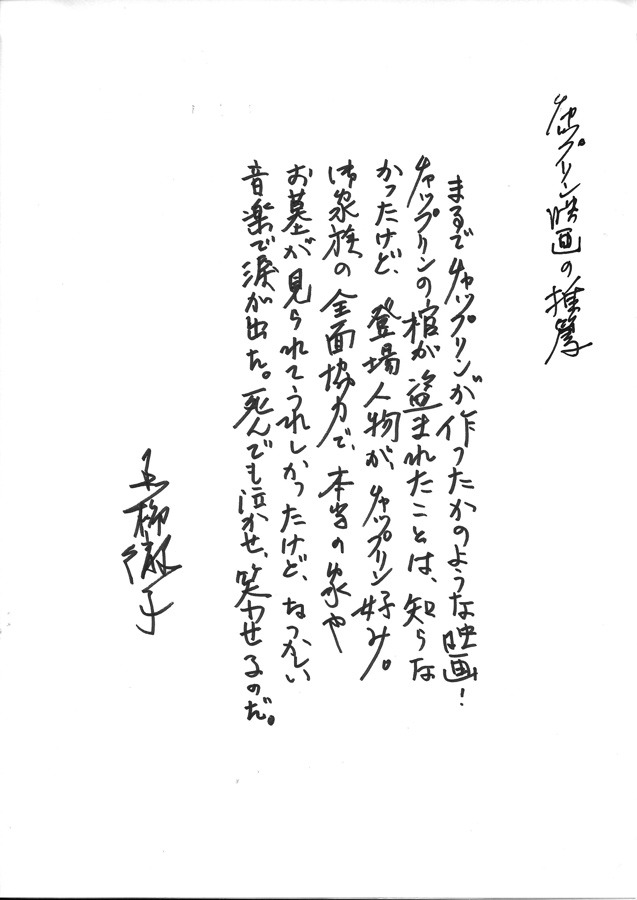 チャップリン映画の推薦
まるでチャップリンが作ったかのような映画!
チャップリンの棺が盗まれたことは、知らな
かったけど、登場人物が、チャップリン好み。
御家族の全面協力で、本当の家や
お墓が見られてうれしかったけど、なつかしい
音楽で涙が出た。死んでも泣かせ、笑わせるのだ。
黒柳徹子